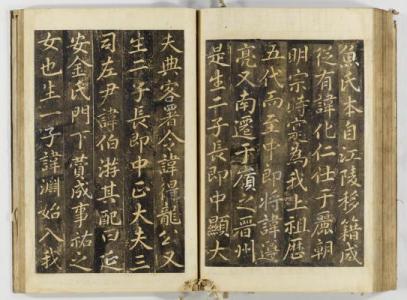 魚氏本自江陵移籍咸
從有諱化仁仕于麗朝
明宗時寔為我上祖歷
五代而至中郎將諱邊
亮又南遷于嶺之晉州
是生二子長即中顯大
夫典客署令諱得龍公又
生二子長即中正大夫三
司左尹諱伯游其配曰延
安金氏門下贊成事祐之
女也生一子諱淵始入我